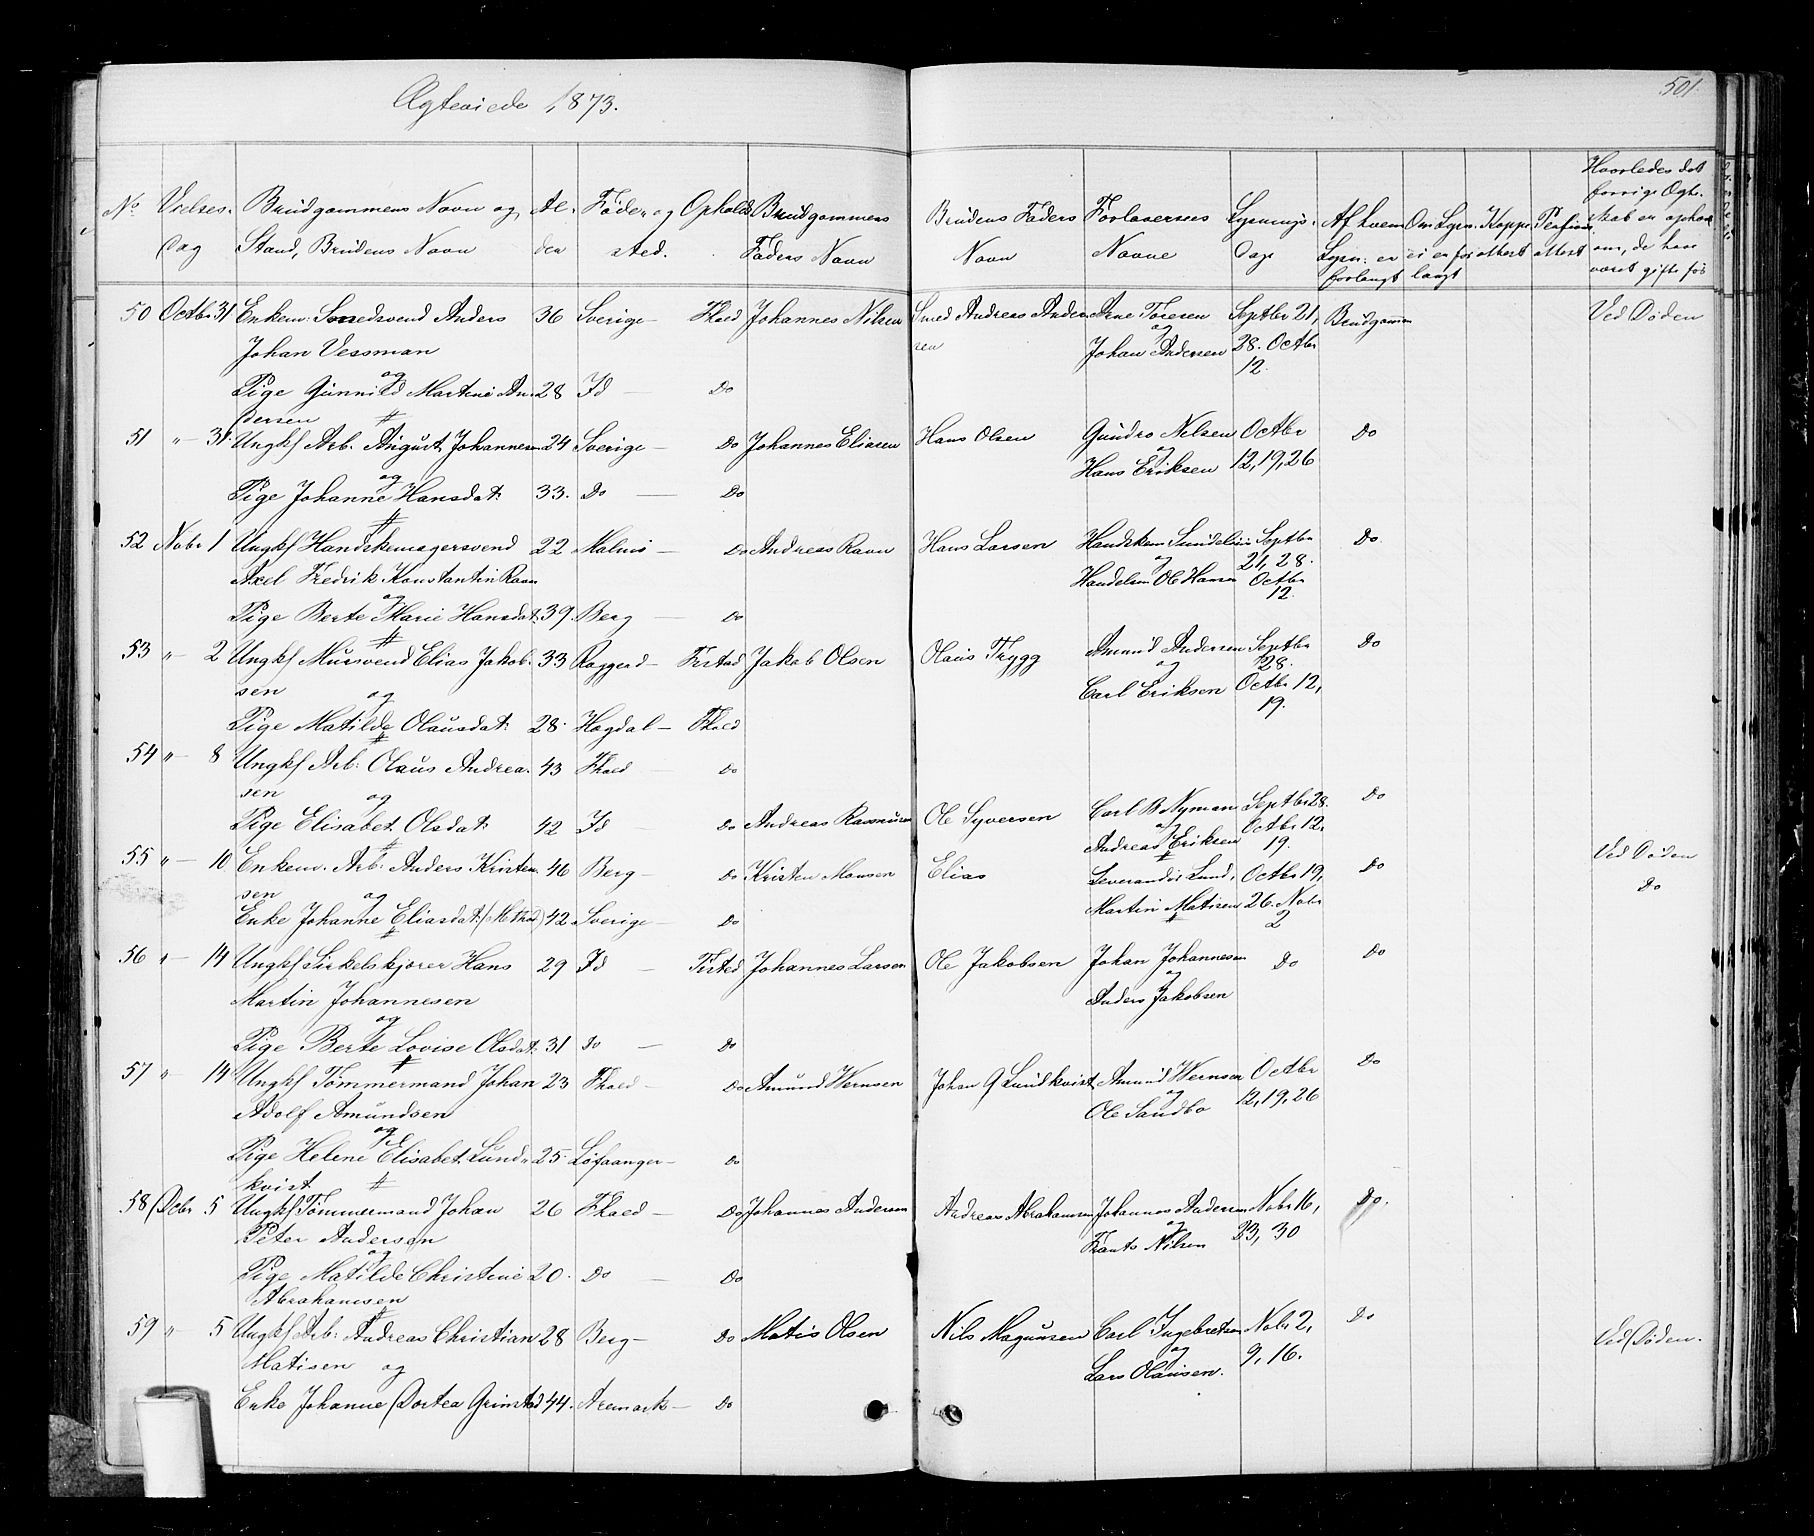 Ægteviede 1873.
501.
No. Vielses- Dag Brudgommens Navn og Stand, Brudens Navn Al- der Føde- og Opholds sted. Brudgommens Faders Navn Brudens Faders Navn Forlovernes Navne Lysnings- Dage Af hvem Lysn: er forlangt Om Lysn: ei er for langt Koppe attest Hvorledes det forrige Ægte- skab er ophæ om, de har været gifte før
50 Octbr 31 Enkem: Smedsvend Anders 36 Sverige - Fhald Johannes Nilsen Smed Andreas Ander Arne Toresen Septbr 21, Brudgommen Ved Døden
sen og
Johan Vessman Johan Andersen 28. Octbr
og 12.
Pige Gunnild Martine An- 28 Id — Do
dersen #
51 " - 31 Ungkf Arb. August Johannesen 24 Sverige - Do Johannes Eliasen Hans Olsen Gundro Nelsen Octbr Do
og Hans Eriksen 12, 19, 26
Pige Johanne Hansdat: 33. Do — Do
#
52 Nobr 1 Ungkf Handskemagersvend 22 Malmö - Do Andreas Ravn Hans Larsen Handskem Septbr Do
Axel Fredrik Konstantin Ravn og 21, 28.
og Handelsm Ole Hansen Octbr
Pige Berte Marie Hansdat: 39. Berg — Do 12.
#
53 " - 2 Ungkf Mursvend Elias Jakob- 33 Raggerd - Fistad Jakob Olsen Olaus Trygg Amund Andersen Septbr Do
sen og og 28.
Carl Eriksen Octbr 12,
Pige Matilde Olausdat: 28. Hogdal - Fhald 19.
#
54 " - 8 Ungkf Arb: Olaus Andrea- 43 Fhald — Do
sen og
Pige Elisabet Olsdat: 42 Id — Do Andreas Rasmusen Ole Syversen Carl B Nyman Septbr 28. Do
# og Octbr 12,
Andreas Eriksen 19.
55 " - 10 Enkem. Arb: Anders Kristen- 46 Berg - Do Kristen Monsen Elias Leverandør Lund, Octbr 19, Do Ved Døden
sen og Martin Matisen 26. Nobr Do
Enke Johanne Eliasdat: 42 Sverige - Do # 2
#
56 " - 14 Ungkf Sirkelskjører Hans 29 Id — Fisted Johannes Larsen Ole Jakobsen Johan Johannesen Do Do
Martin Johannesen og
og Anders Jakobsen
Pige Berte Lovise Olsdat: 31 Do — Do
#
57 " - 14 Ungkf Tømmermand Johan 23 Fhald - Do Amund Wernsen Johan G Lundkvist Amund Wernsen Octbr Do
Adolf Amundsen og 12, 19, 26
og Ole Sandbo
Pige Helene Elisabet Lund- 25. Løfaanger - Do
kvist #
58 Decbr 5 Ungkf Tømmermand Johan 26 Fhald - Do Johannes Andersen Andreas Abrahamsen Johannes Andersen Nobr 16, Do.
Peter Andersen og 23, 30
og Frants Nilsen
Pige Matilde Christine 20. Do — Do
Abrahamsen
#
59 " 5 Ungkf Arb: Andreas Christian 28 Berg - Do Matis Olsen Nils Magunsen Carl Ingebretsen Nobr 2, Do Ved Døden.
Matisen og og 9, 16.
Lars Olausen.
Enke Johanne Dortea Grimstad 44. Aremark - Do